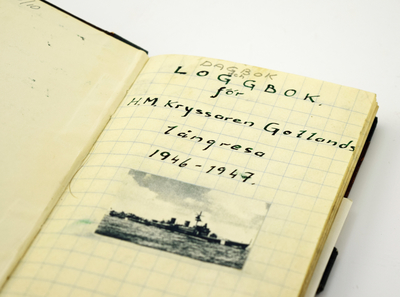 /10
DAGBOK
och
LOGGBOK.
för
H.M. Kryssaren Gotlands
Långresa
1946-1947.